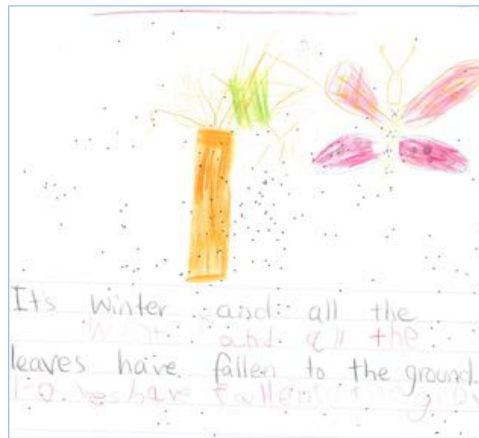 Its winter and all the
and all the
leaves have fallen to the ground.
leaves have fallen to the grou